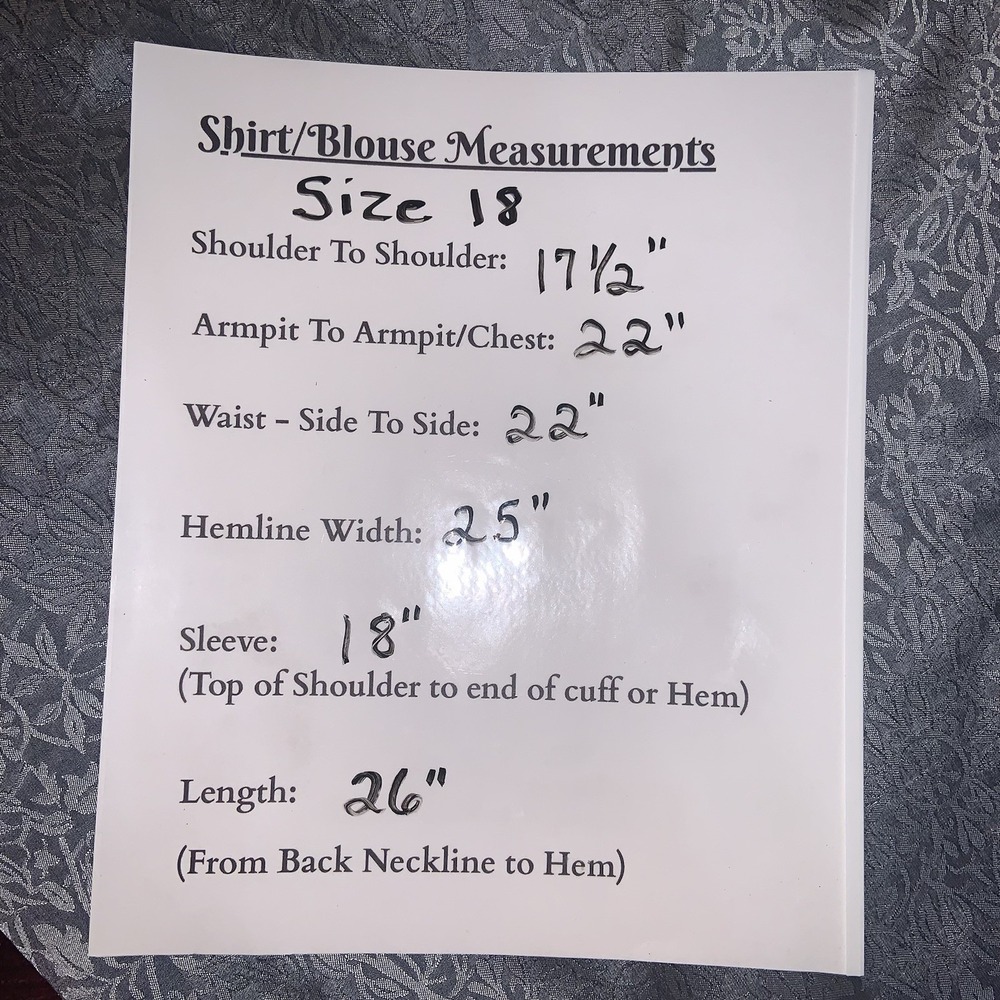 Shirt/Blouse Measurements
Size 18
Shoulder To Shoulder: 17 1/2"
Armpit To Armpit/Chest: 22"
Waist – Side To Side: 22"
Hemline Width: 25"
Sleeve: 18"
(Top of Shoulder to end of cuff or Hem)
Length: 26"
(From Back Neckline to Hem)